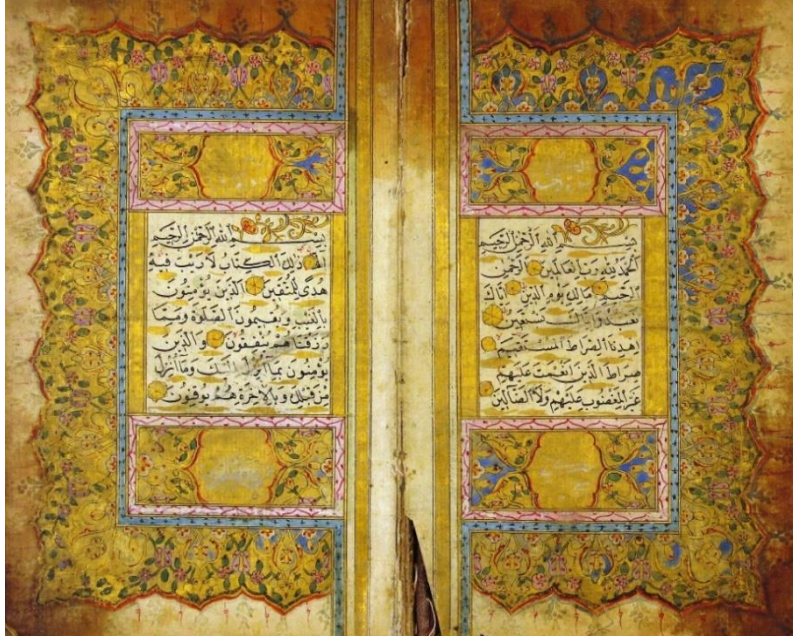 بِسْمِ اللهِ الرَّحْمٰنِ الرَّحِيمِ
اَلْحَمْدُ لِلّٰهِ رَبِّ الْعَالَمِينَ الرَّحْمٰنِ
الرَّحِيمِ مَالِكِ يَوْمِ الدِّينِ اِيَّاكَ
نَعْبُدُ وَاِيَّاكَ نَسْتَعِينُ
اِهْدِنَا الصِّرَاطَ الْمُسْتَقِيمَ
صِرَاطَ الَّذِينَ اَنْعَمْتَ عَلَيْهِمْ
غَيْرِ الْمَغْضُوبِ عَلَيْهِمْ وَلَا الضَّالِّينَ
بِسْمِ اللهِ الرَّحْمٰنِ الرَّحِيمِ
الٓمٓ ذٰلِكَ الْكِتَابُ لَا رَيْبَ فِيهِ
هُدًى لِلْمُتَّقِينَ اَلَّذِينَ يُؤْمِنُونَ
بِالْغَيْبِ وَيُقِيمُونَ الصَّلٰوةَ وَمِمَّا
رَزَقْنَاهُمْ يُنْفِقُونَ وَالَّذِينَ
يُؤْمِنُونَ بِمَا اُنْزِلَ اِلَيْكَ وَمَا اُنْزِلَ
مِنْ قَبْلِكَ وَبِالْاٰخِرَةِ هُمْ يُوقِنُونَ